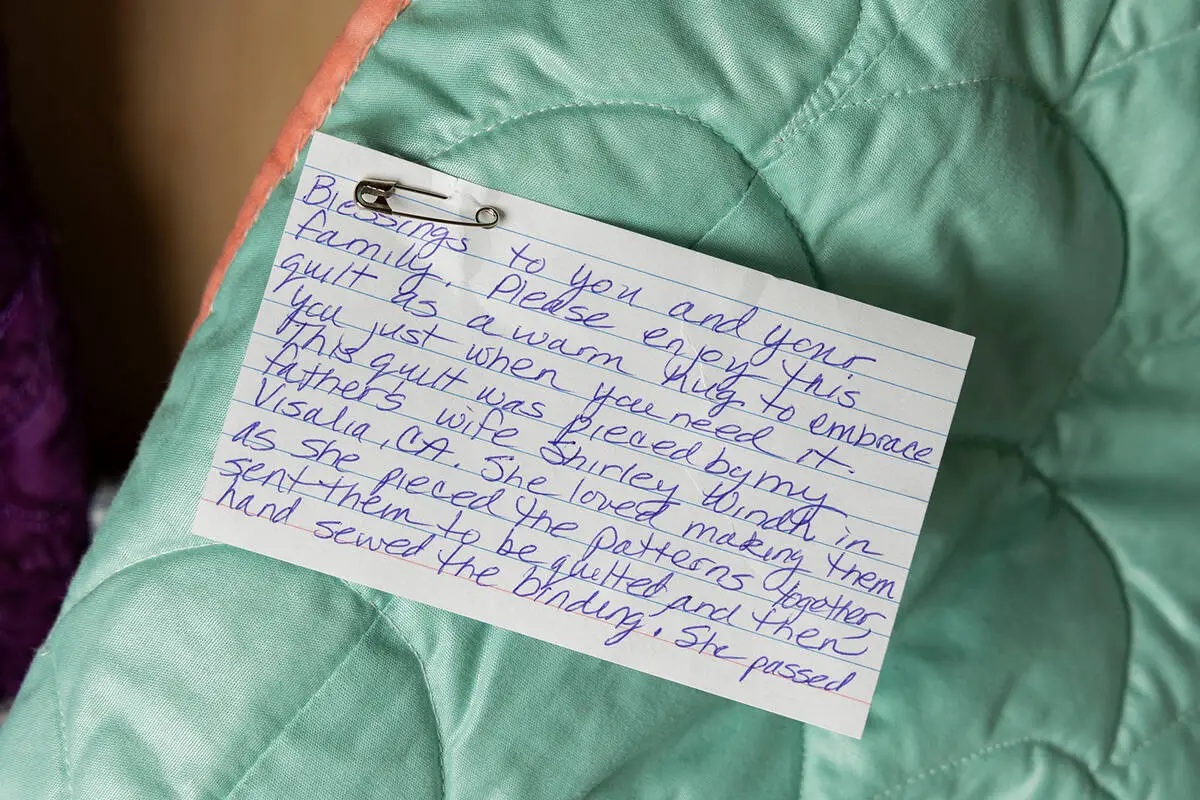 Blessings to you and your
family. Please enjoy this
quilt as a warm hug to embrace
you just when you need it.
This quilt was pieced by my
father's wife Shirley Windh in
Visalia, CA. She loved making them
as she pieced the patterns together,
sent them to be quilted and then
hand sewed the binding. She passed